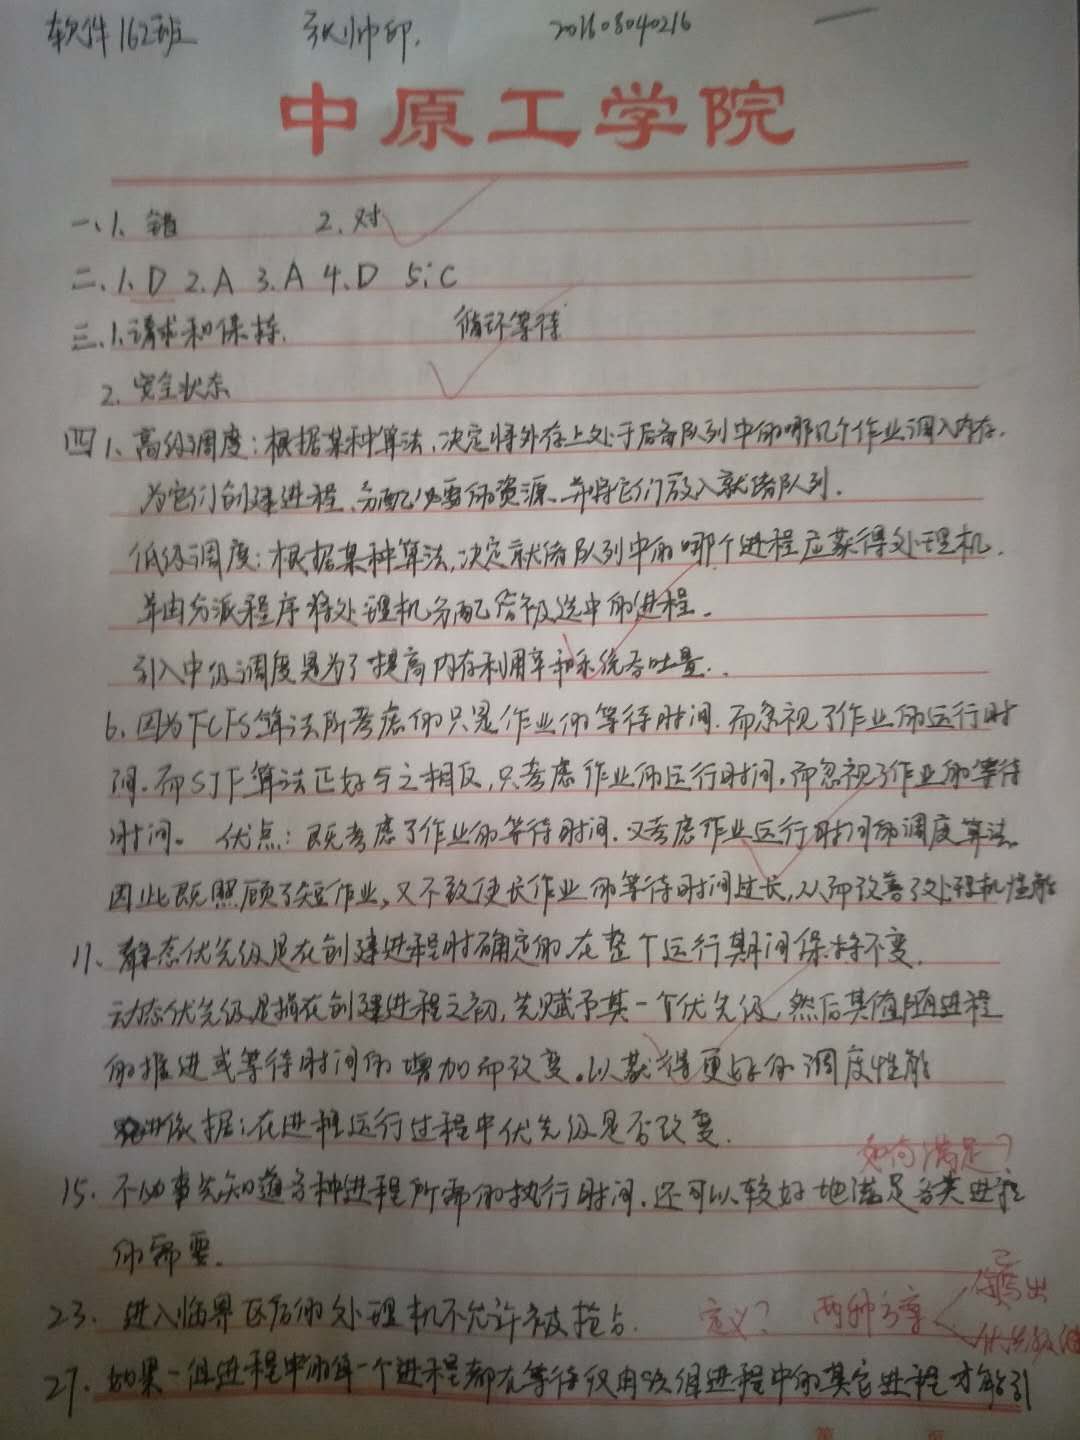 软件162班 张帅印. 201608040216
中原工学院
一、1、错 2.对
二、1、D 2.A 3.A 4.D 5;C
三、1、请求和保持. 循环等待
2、安全状态
四 1、高级调度:根据某种算法,决定将外存上处于后备队列中的哪几个作业调入内存.
为它们创建进程、分配必要的资源、并将它们放入就绪队列.
低级调度:根据某种算法,决定就绪队列中的哪个进程应获得处理机.
并由分派程序将处理机分配给被选中的进程.
引入中级调度是为了提高内存利用率和系统吞吐量.
6、因为FCFS算法所考虑的只是作业的等待时间.而忽视了作业的运行时
间.而SJF算法正好与之相反,只考虑作业的运行时间,而忽视了作业的等待
时间。 优点:既考虑了作业的等待时间.又考虑作业运行时间的调度算法。
因此既照顾了短作业,又不致使长作业的等待时间过长,从而改善了处理机性能
11、静态优先级是在创建进程时确定的.在整个运行期间保持不变.
动态优先级是指在创建进程之初,先赋予其一个优先级,然后其值随进程
的推进或等待时间的增加而改变。以获得更好的调度性能
依据:在进程运行过程中优先级是否改变.
如何满足?
15. 不必事先知道各种进程所需的执行时间.还可以较好地满足各类进程
的需要.
23. 进入临界区后的处理机不允许被抢占. 定义? 两种方享 出
优先级继
27. 如果一组进程中的每一个进程都在等待仅由该组进程中的其它进程才能引
第 页